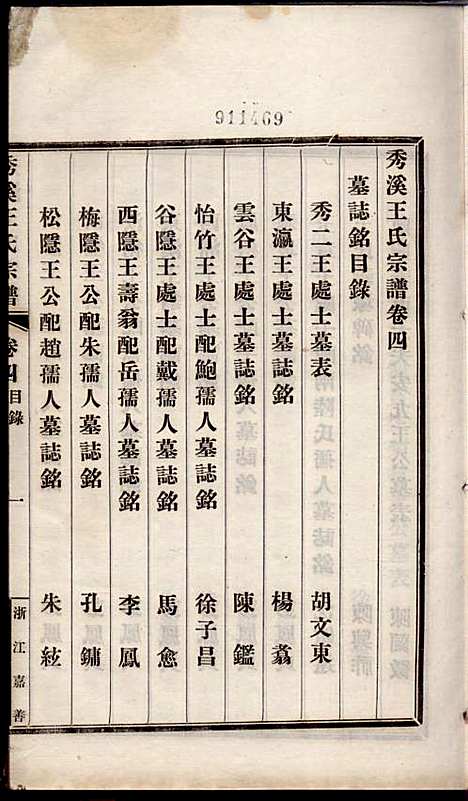 911469
秀溪王氏宗譜卷四
墓誌銘目錄
秀二王處士墓表 胡文東
東瀛王處士墓誌銘 楊翥
雲谷王處士墓誌銘 陳鑑
怡竹王處士配鮑孺人墓誌銘 徐子昌
谷隱王處士配戴孺人墓誌銘 馬愈
西隱王壽翁配岳孺人墓誌銘 李鳳
梅隱王公配朱孺人墓誌銘 孔鏞
松隱王公配趙孺人墓誌銘 朱紘
秀溪王氏宗譜 卷四 目錄 一 浙江嘉善